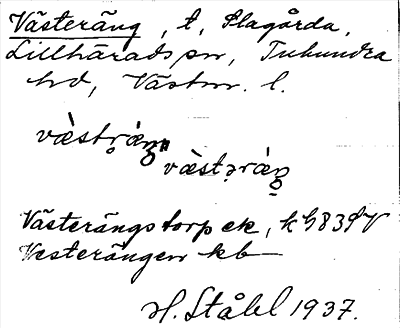 Västeräng, t, Slagårda,
Lillhärads sn, Tuhundra
hd, Västm. l.
væ̀str̥æ̀ŋ" væ̀stəræ̀ŋ
Västerängstorp ek,
Vesterängen kb
H. Ståhl 1937.